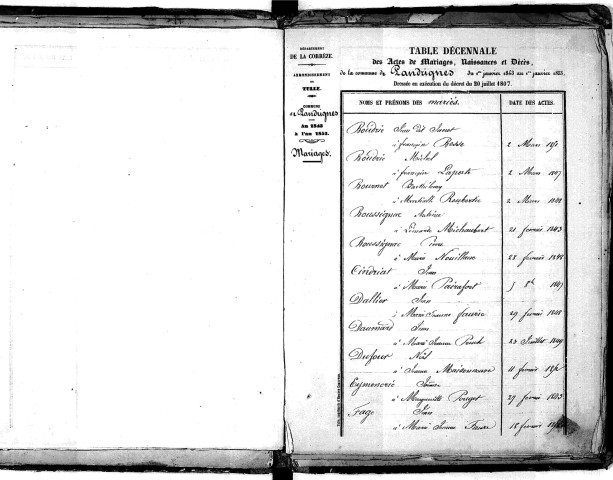 DÉPARTEMENT
DE LA CORRÈZE.
ARRONDISSEMENT
DE
TULLE.
COMMUNE
de Pandrignes
An 1843
à l'an 1853.
Mariages.
TABLE DÉCENNALE
des Actes de Mariages, Naissances et Décès,
de la commune de Pandrignes du 1er janvier 1843 au 1er janvier 1853.
Dressée en exécution du décret du 20 juillet 1807.
NOMS ET PRÉNOMS DES mariés. DATE DES ACTES.
Boudrie Jean dit
à françoise Besse 2 Mars
Boudrie Michel
à françoise Laporte 2 Mars 1847
Bournet Barthélemy
à 2 Mars 1848
Boussignac Antoine
à Léonarde Michaubert 21 fevrier 1843
Boussignac Pierre
à Marie 28 fevrier 1848
Cindriat Jean
à Marie 5 8bre 1847
Dallier Jean
à Marie Jeanne faurie 29 fevrier 1848
Daumard Jean
à Marie Jeanne Pouch 23 Juillet 1849
Dufour Noël
à Jeanne Maisonneuve 11 fevrier
Eymenerie
à Marguerite Pouget 27 fevrier 1843
Fage Jean
à Marie Jeanne 18 fevrier